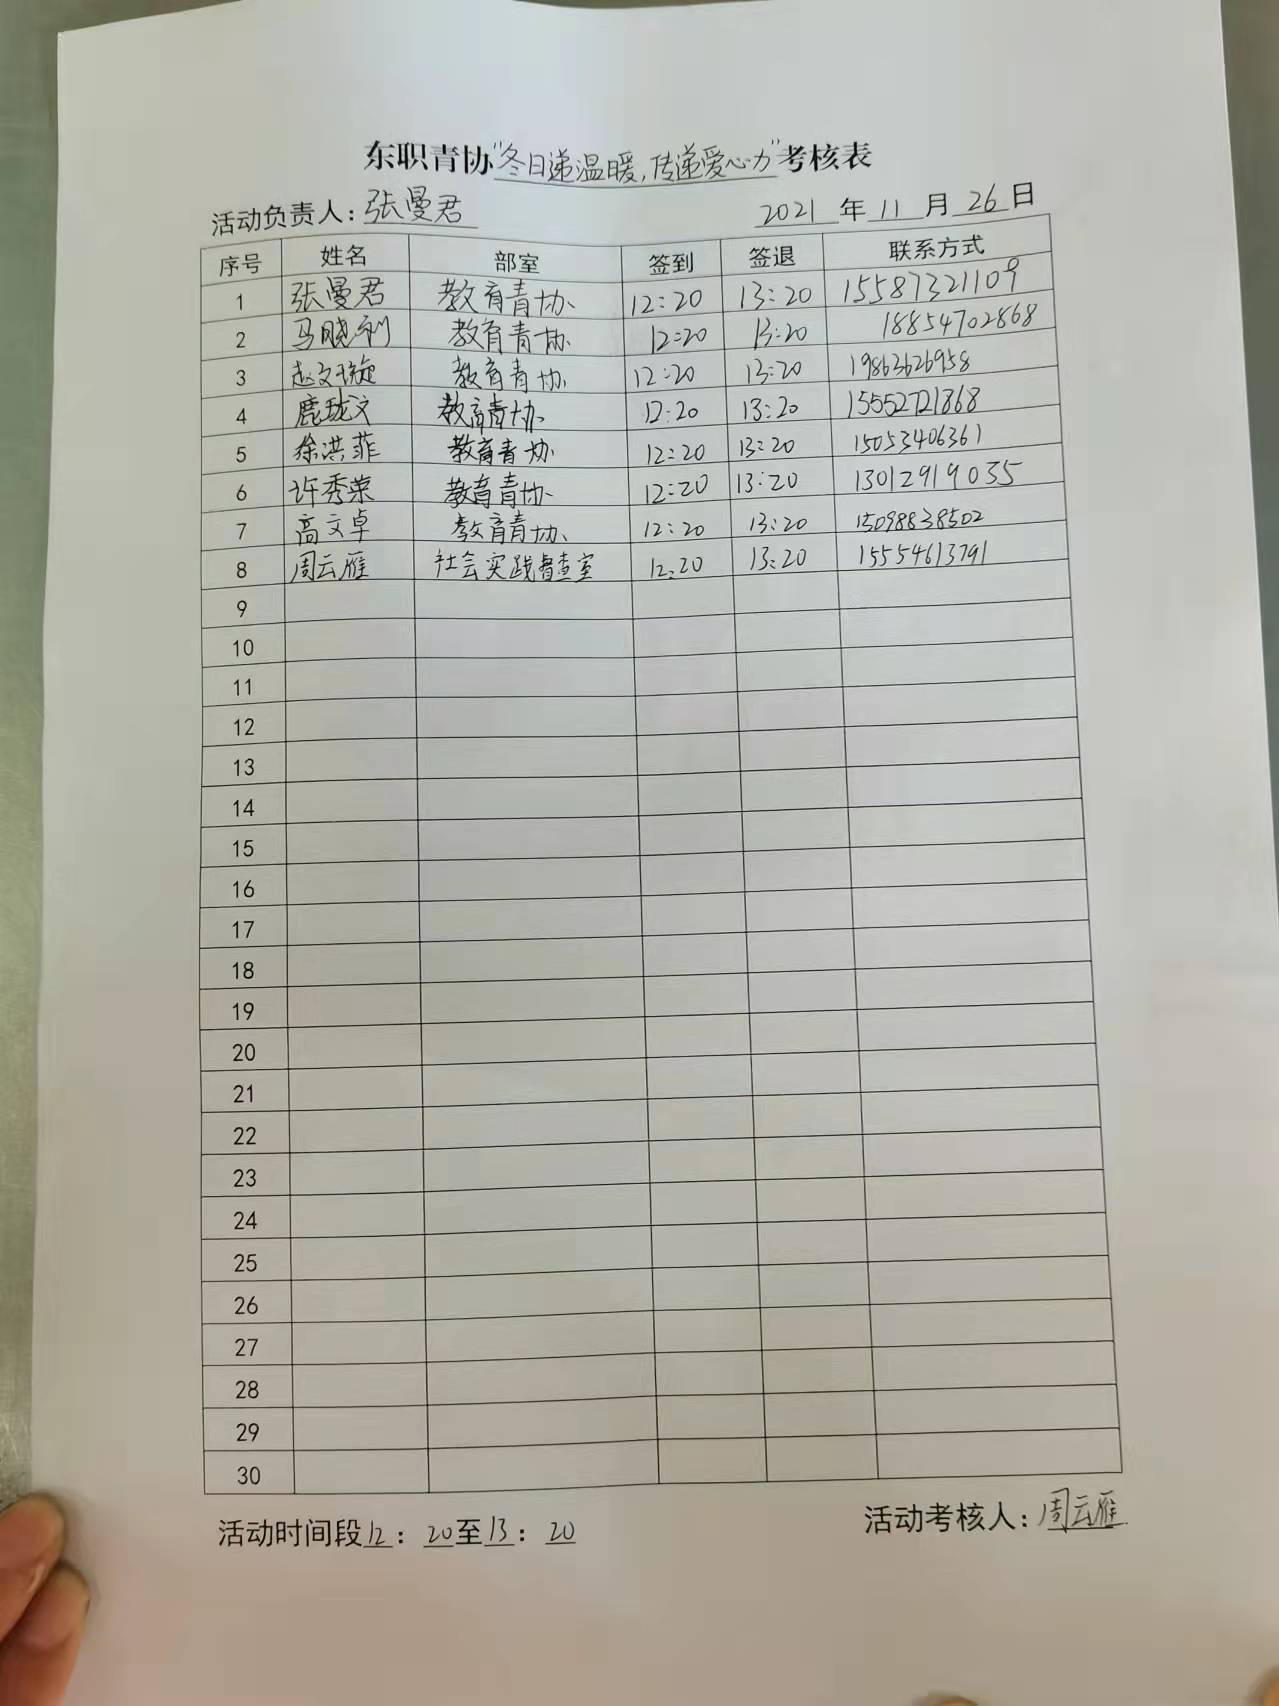 东职青协"冬日递温暖,传递爱心力"考核表
活动负责人:张曼君 2021年11月26日
序号 姓名 部室 签到 签退 联系方式
1 张曼君 教育青协 12:20 13:20 15587321109
2 马晓利 教育青协 12:20 13:20 18854702868
3 赵文璇 教育青协 12:20 13:20 19863626958
4 鹿珑文 教育青协 12:20 13:20 15552721868
5 徐洪菲 教育青协 12:20 13:20 15053406361
6 许秀荣 教育青协 12:20 13:20 13012919035
7 高文卓 教育青协 12:20 13:20 15098838502
8 周云雁 社会实践督查室 12:20 13:20 15554613791
9
10
11
12
13
14
15
16
17
18
19
20
21
22
23
24
25
26
27
28
29
30
活动时间段12:20至13:20 活动考核人:周云雁